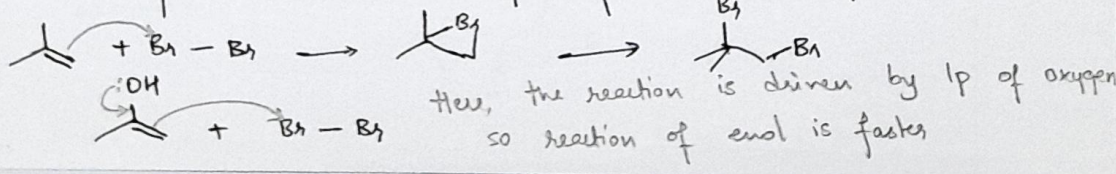 Br
Br
+ Br — Br
Br
:OH
Here, the reaction is driven by lp of oxygen
+ Br — Br
so reaction of enol is faster